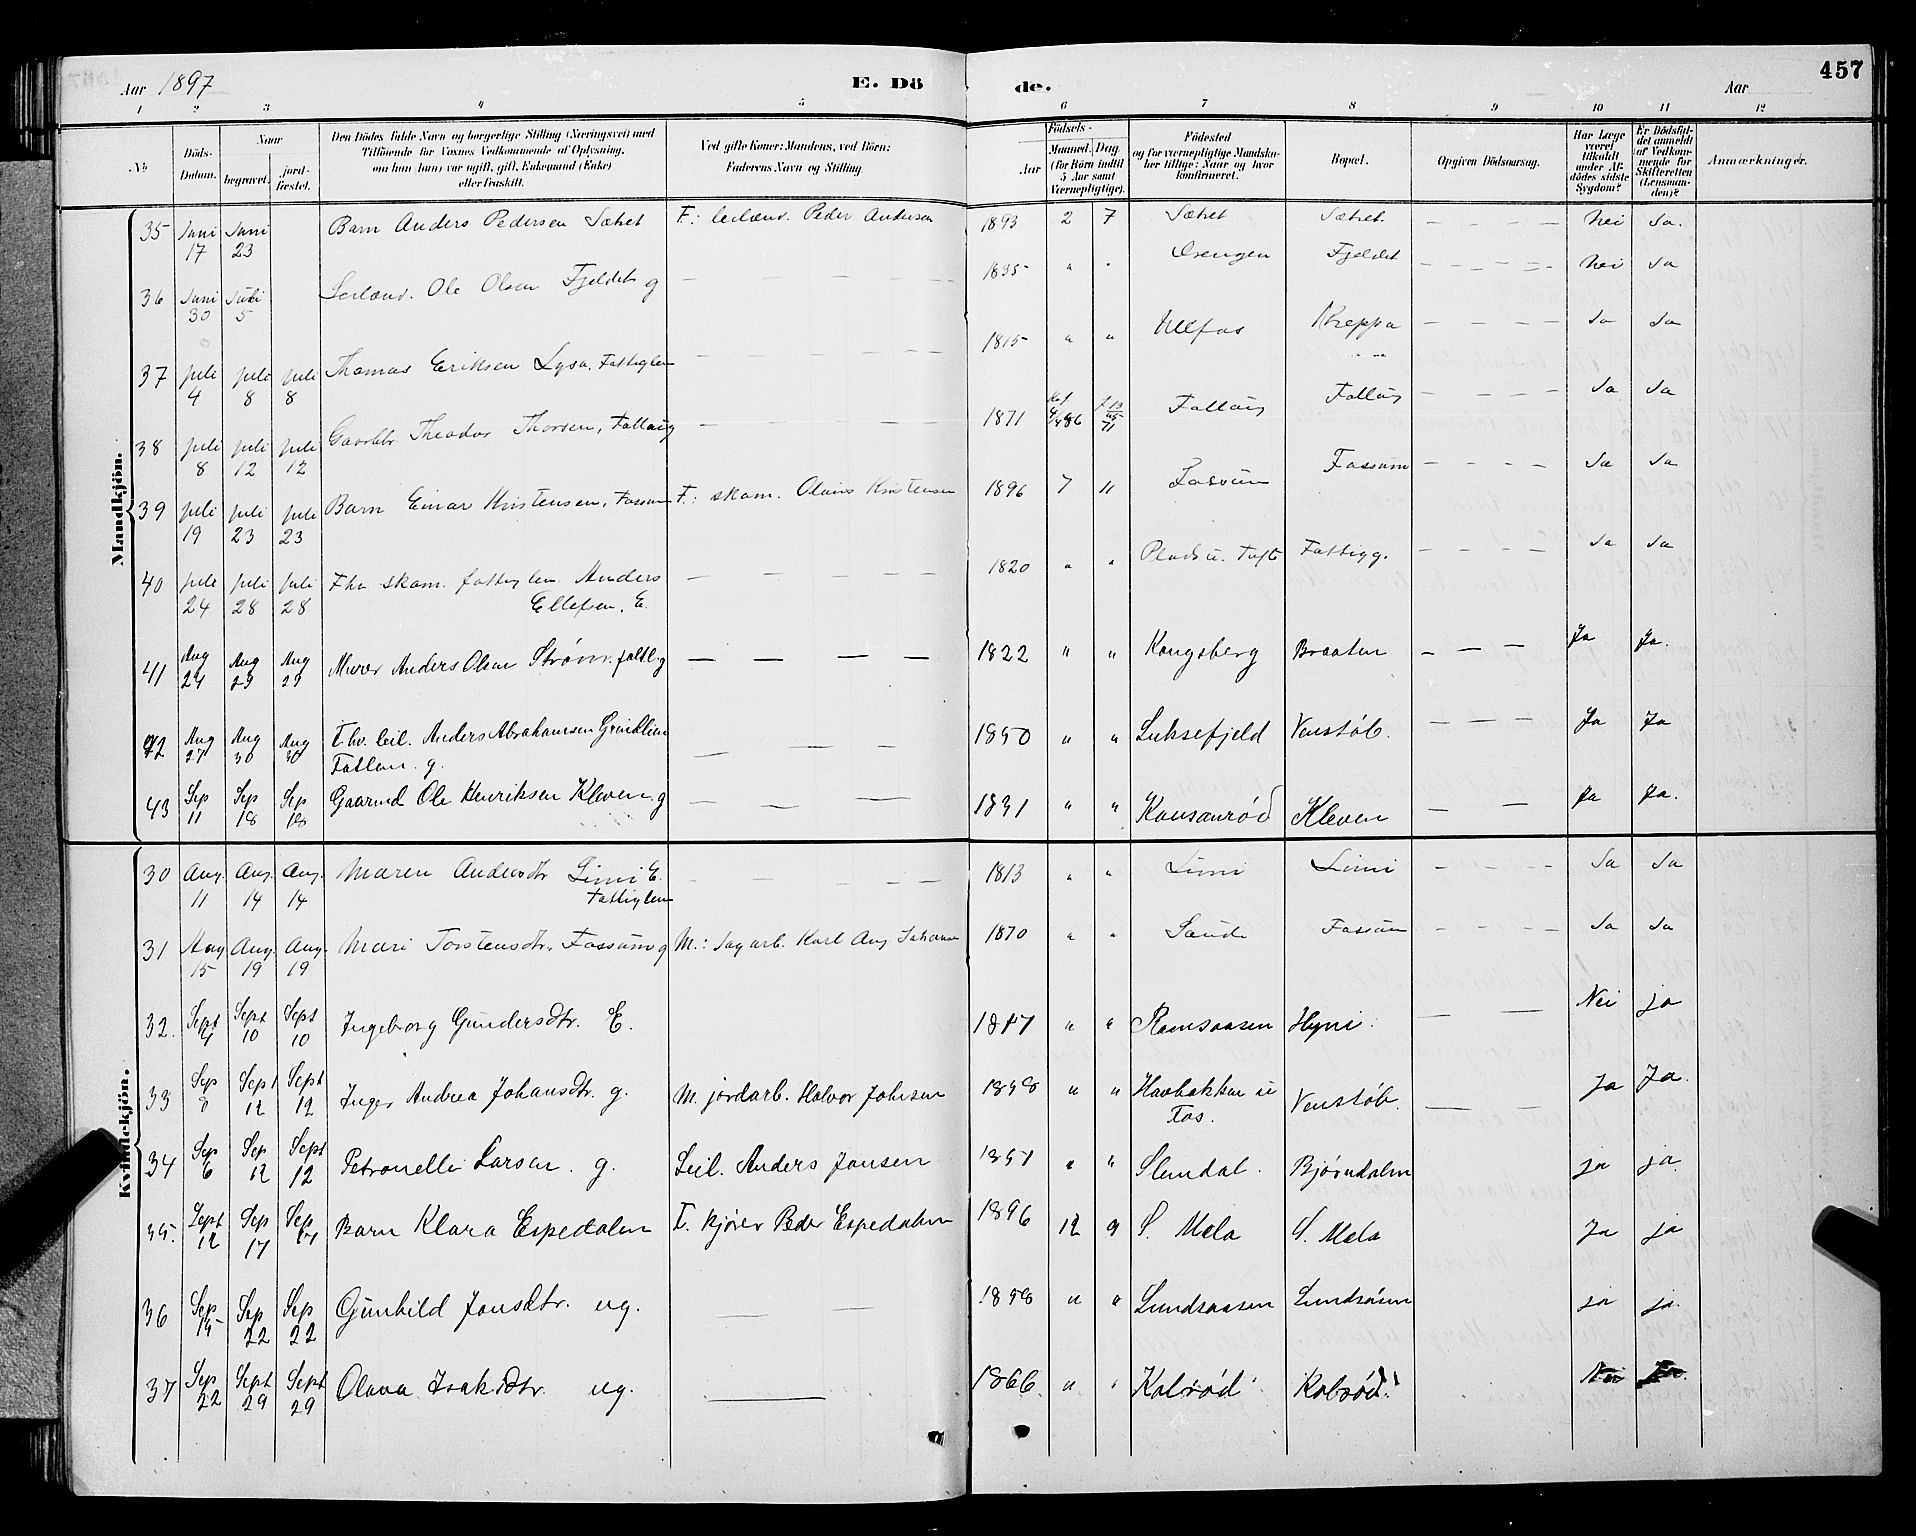 457
Aar 1897
E. Dö de.
Aar
1 2 3 4 5 6 7 8 9 10 11 12
No.
Döds-
Datum.
Naar
begravet.
jord-
fæstet.
Den Dödes fulde Navn og borgerlige Stilling (Næringsvei) med
Tilföiende for Voxnes Vedkommende af Oplysning,
om han (hun) var ugift, gift, Enkemand (Enke)
eller fraskilt.
Ved gifte Koner: Mandens, ved Börn:
Faderens Navn og Stilling.
Födsels-
Aar
Maaned. Dag.
(for Börn indtil
5 Aar samt
Værnepligtige).
Födested
og for værnepligtige Mandska-
ber tillige: Naar og hvor
konfirmeret.
Bopæl.
Opgiven Dödsaarsag.
Har Læge
været
tilkaldt
under Af-
dödes sidste
Sygdom?
Er Dödsfal-
det anmeldt
af Vedkom-
mende for
Skifteretten
(Lensman-
den)?
Anmærkninger.
Mandkjön.
35 Juni 17 Juni 23 Barn Anders Pedersen Sætret F: leilænd. Peder Andersen 1893 2 7 Sætret Sætret. — — — — Nei Ja.
36 Juni 30 Juli 5 Leilænd. Ole Olsen Fjeldet g — — — — 1835 " " Fjeldet — — — — Nei Ja
37 Juli 4 Juli 8 Juli 8 Thomas Eriksen Lysa. Fattiglem — — — — 1815 " " Ulfos — — — — Ja Ja
38 Juli 8 Juli 12 Juli 12 Gaardbr Theodor Thorsen, — — — — 1871 — — — — Ja Ja
39 Juli 19 Juli 23 Juli 23 Barn Einar Kristensen, Fossum F: skom. Olaus Kristensen 1896 7 11 Fossum Fossum — — — — Ja Ja
40 Juli 24 Juli 28 Juli 28 Fhv skom. fattiglem. Anders
Ellefsen. E. — — — — 1820 " " Plads u. Tuft Fattigg. — — — — Ja Ja
41 Aug 24 Aug 29 Aug 29 Murer Anders Olsen Strøm. fattl. g — — — — 1822 " " Kongsberg Braaten — — — Ja Ja.
42 Aug 27 Aug 30 Aug 30 Fhv. leil. Anders Abrahamsen
g. — — — 1850 " " Luksefjeld Venstøb. — — — Ja Ja
43 Sep 11 Sep 18 Sep 18 Gaarmd Ole Henriksen Kleven. g — — — 1831 " " Kleven — — Ja Ja.
Kvindekjön.
30 Aug. 11 Aug. 14 Aug. 14 Maren Andersdtr Limi E.
Fattiglem — — — — 1813 " " Limi Limi — — — — Ja Ja
31 Aug 15 Aug. 19 Aug. 19 Mari Torstensdtr. Fossum g M.: Sagarb. Karl Aug Johansen 1870 " " Saude Fossum — — — — Ja Ja
32. Sept 4 Sept 10 Sept 10 Ingeborg Gundersdtr. E. 1817 " " Ramsaasen Hyni. — — Nei ja
33 Sep 8 Sept 12 Sept 12 Inger Andrea Johansdtr. g. M. jordarb. Halvor Johnsen " " Havbakken u
Fos. Venstøb. — — Ja Ja.
34 Sep 6 Sep 12 Sept 12 Petronelle Larsen. g. Leil. Anders Jansen " " Slemdal. Bjørndalen ja ja.
35. Sept 12 Sep 17 Sep 17 Barn Klara Espedalen F. kjører Peder Espedalen 1896 12 9 S. Mæla S. Mæla Ja ja
36 Sep 15 Sep 22 Sep 22 Gunhild Jansdtr. ug. — — " " Lundsaasen Lundsåsen ja ja.
37 Sep 22 Sept 29 Sept 29 Olava Isaksdtr. ug. — 1866 " " Kolrød Kolrød. Nei Ja.